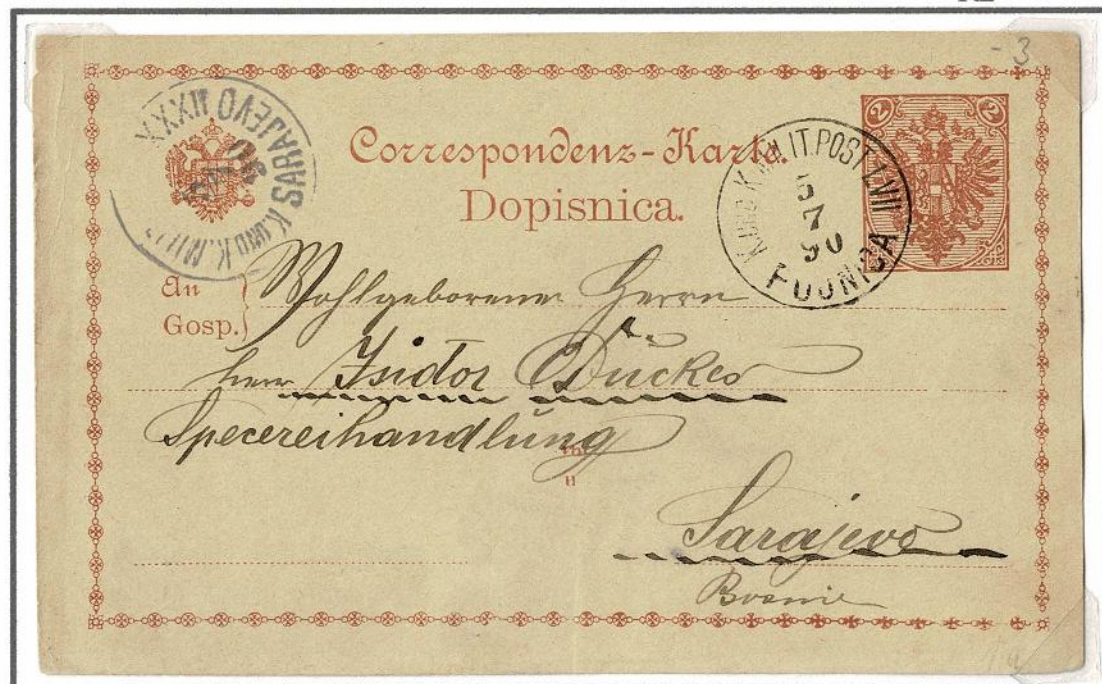 - 3
2 2
SARAJEVO XXXII
K. UND K. MIL
90
Correspondenz-Karte.
Dopisnica.
K. UND K. MILIT. POST LVII
5
7
90
FOJNICA
An
Gosp.
Wohlgeborenen Herrn
Herrn Isidor Dückes
Specereihandlung
in
u
Sarajevo
Bosnien